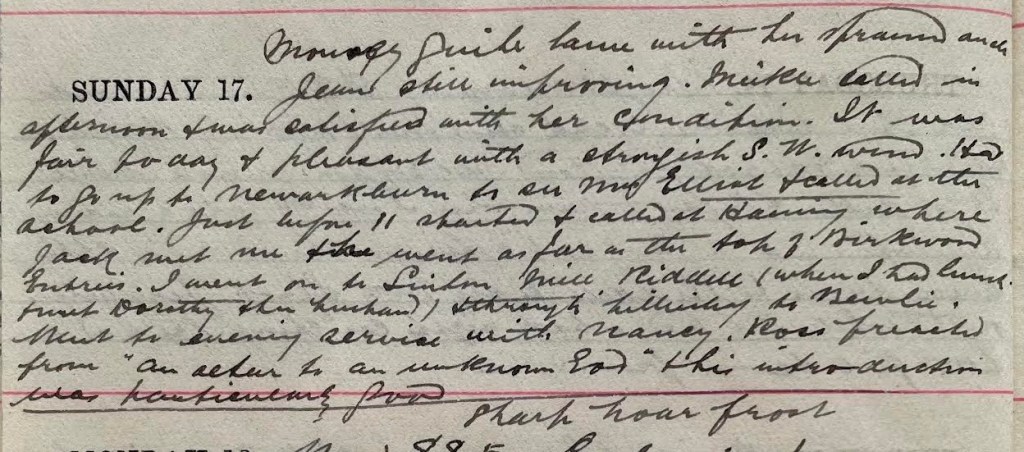 quite lame with her sprained ancle
SUNDAY 17. Jean still improving. Meikle called in
afternoon & was satisfied with her condition. It was
fair today & pleasant with a strongish S.W. wind. Had
to go up to Newarkburn to see Mrs Elliot & called at the
school. Just before 11 started & called at Haining where
Jack met me & he went as far as the top of Birkwood
Entries. I went on to Linton Mill Riddell (where I had lunch
& met Dorothy & her husband) & through Lilliesleaf to Bewlie.
Went to evening service with Nancy. Ross preached
from "An altar to an unknown God" & his introduction
was particularly good
Sharp hoar frost